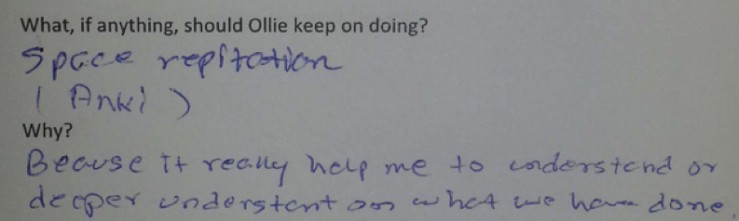 What, if anything, should Ollie keep on doing?
Space repitation
( Anki )
Why?
Beause it really help me to understand or
deeper understant on what we have done.